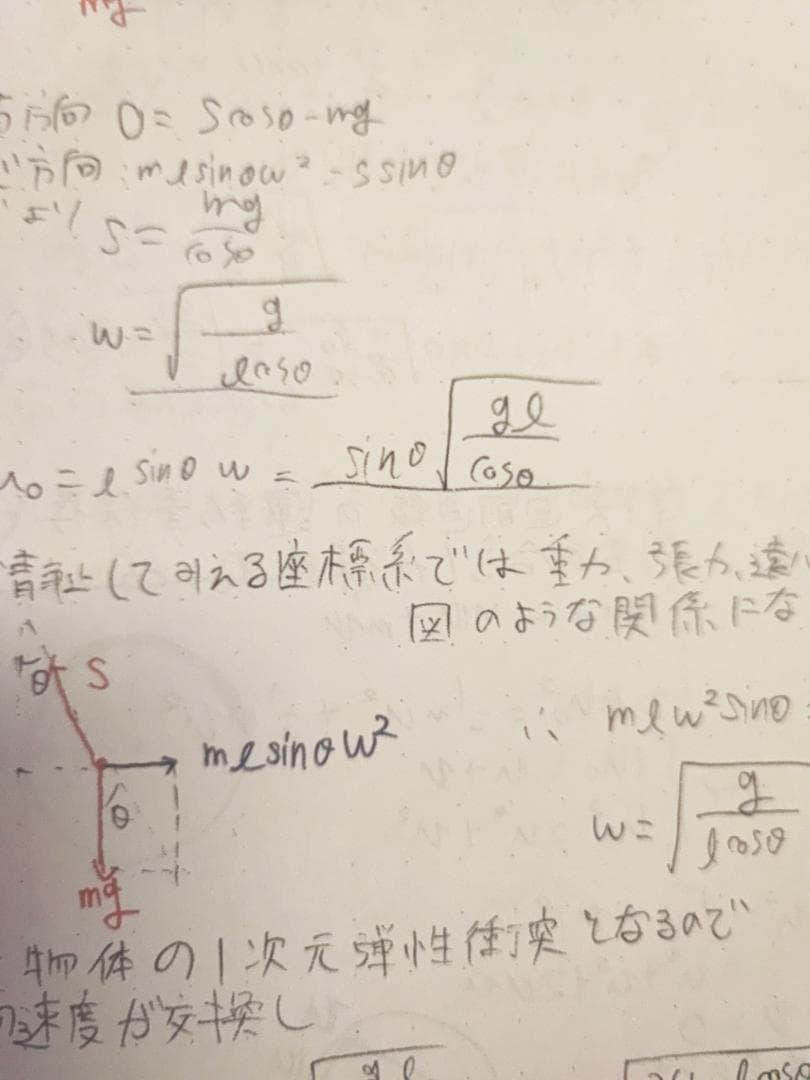 mg
方向 0 = Scosθ - mg
方向: mlsinθω² - Ssinθ
より S = mg/cosθ
ω = √(g/lcosθ)
= l sinθ ω = sinθ√(gl/cosθ)
静止してみえる座標系では重力、張力、遠
図のような関係にな
θ S
mlsinθω²
∴ mlω²sinθ
θ
ω = √(g/lcosθ)
mg
物体の1次元弾性衝突となるので
速度が交換し
gl